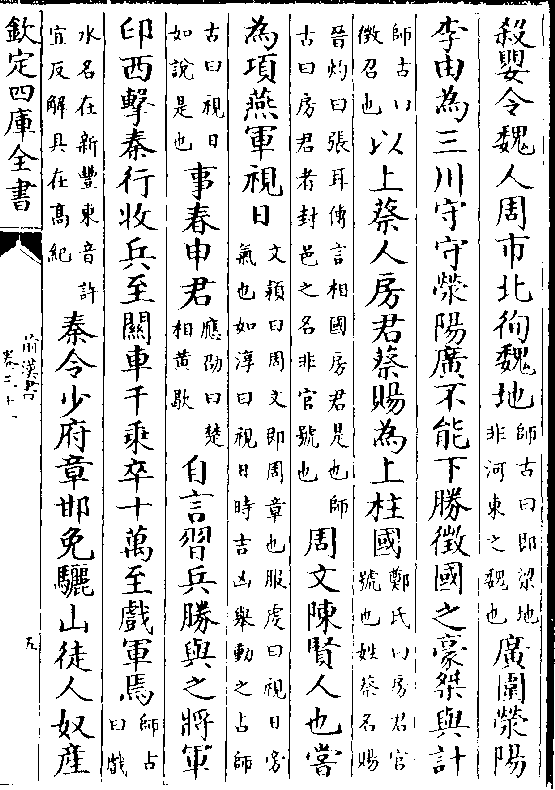 殺嬰令魏人周市北徇魏地師古曰即梁地非河東之魏也廣圍滎陽
李由為三川守守滎陽廣不能下勝徵國之豪桀與計
師古曰徵召也以上蔡人房君蔡賜為上柱國鄭氏曰房君官號也姓蔡名賜
晉灼曰張耳傳言相國房君是也師古曰房君者封邑之名非官號也周文陳賢人也嘗
為項燕軍視日文穎曰周文即周章也服虔曰視日旁氣也如淳曰視日時吉凶舉動之占師
古曰視日如說是也事春申君應劭曰楚相黄歇自言習兵勝與之將軍
印西擊秦行收兵至關車千乘卒十萬至戲軍焉師古曰戲
水名在新豐東音許宜反解具在髙紀秦令少府章邯免驪山徒人奴産
欽定四庫全書
前漢書
卷三十一
九